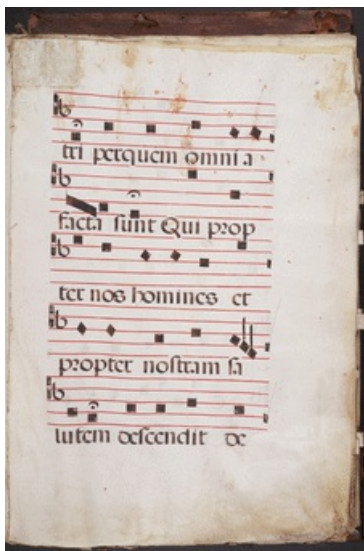 tri perquem omni a
facta sunt Qui prop
ter nos homines et
propter nostram sa
lutem descendit de